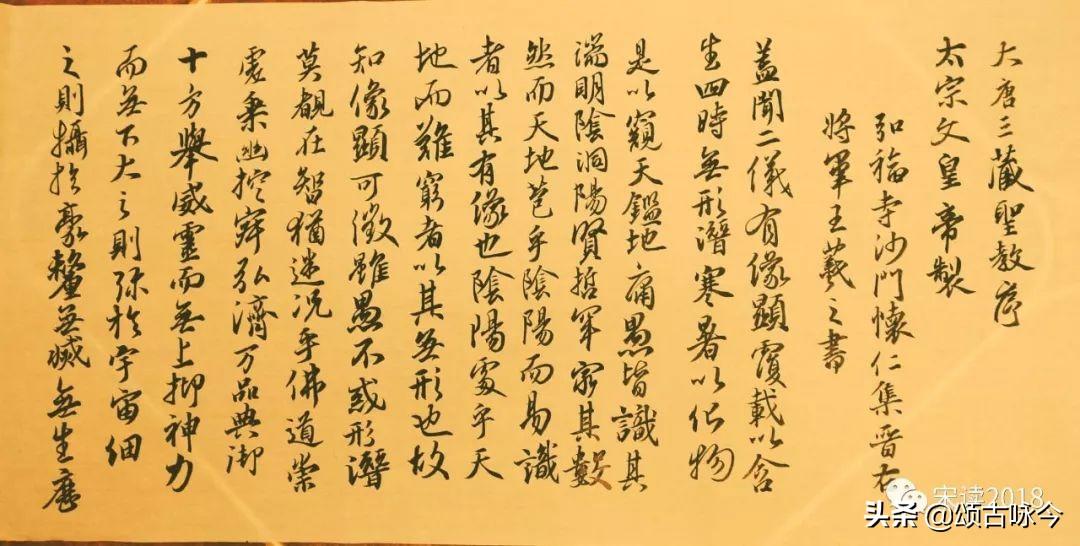 大唐三藏聖教序
太宗文皇帝製
弘福寺沙門懷仁集晉右
將軍王羲之書
蓋聞二儀有像顯覆載以含
生四時無形潛寒暑以化物
是以窺天鑑地庸愚皆識其
端明陰洞陽賢哲罕窮其數
然而天地苞乎陰陽而易識
者以其有像也陰陽處乎天
地而難窮者以其無形也故
知像顯可徵雖愚不惑形潛
莫覩在智猶迷況乎佛道崇
虛乘幽控寂弘濟万品典御
十方舉威靈而無上抑神力
而無下大之則弥於宇宙細
之則攝於豪釐無滅無生歷
宋读2018
头条 @颂古咏今